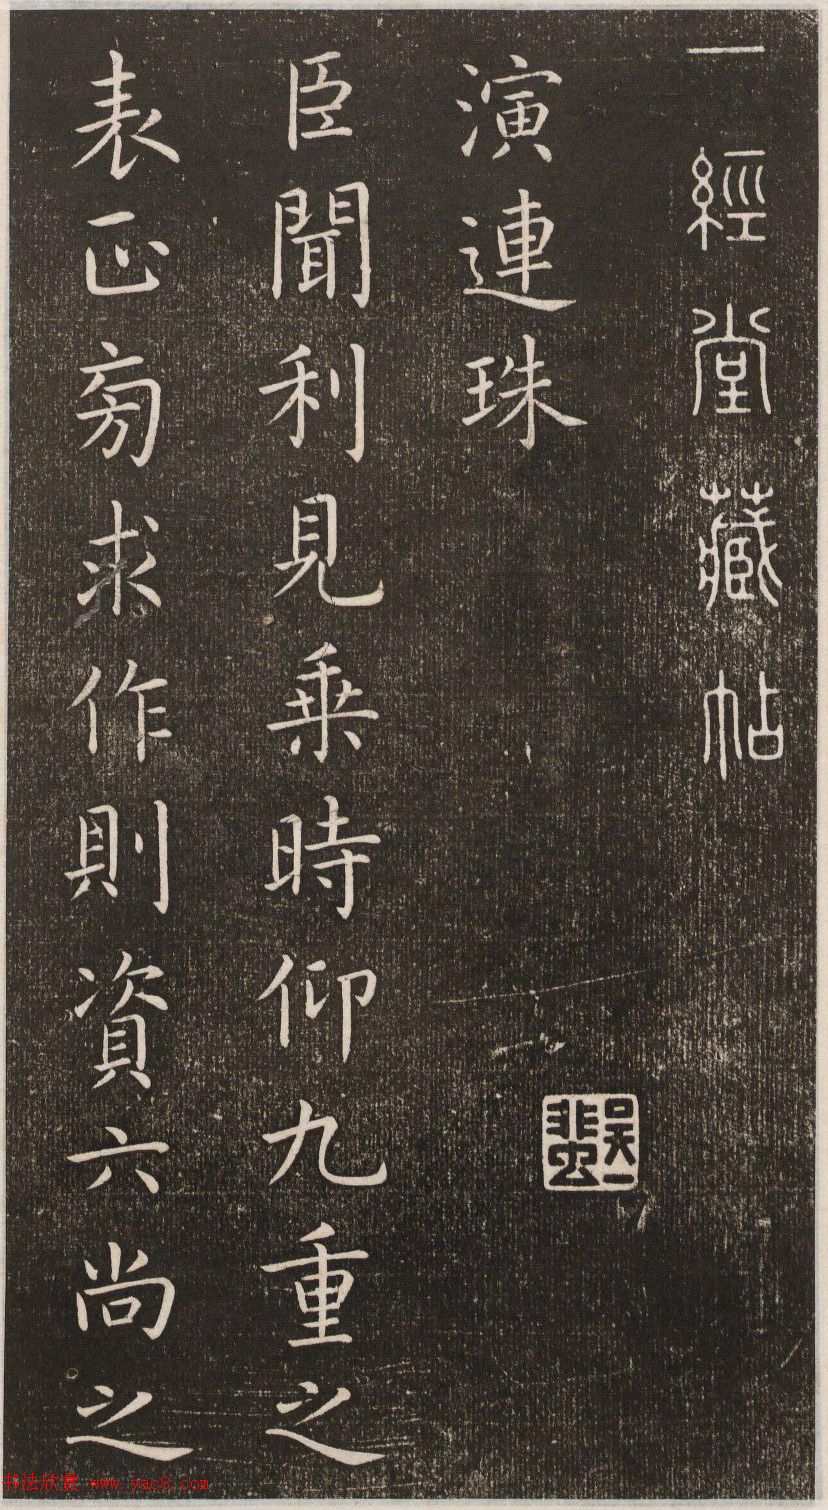 一經堂藏帖
演連珠
臣聞利見乗時仰九重之
表正旁求作則資六尚之
书法欣赏 www.yac8.com